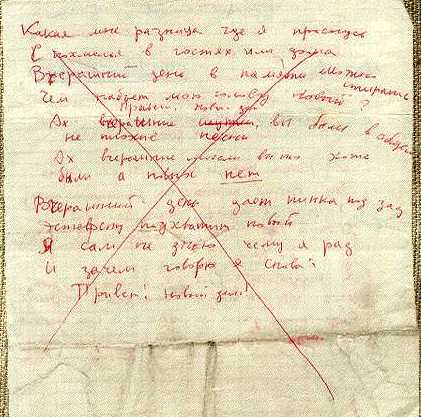 Какая мне разница где я проснусь
С похмелья в гостях или дома
Вчерашний день в памяти может стирались
Чем набьет мою голову новый?
Привет, новый день
Ах вчерашние шутки, вы были в общем
не плохие песни
Ах вчерашние мысли вы то хоть
были а новых нет
Вчерашний день дает пинка под зад
эстафету подхватит новый
Я сам не знаю чему я рад
И зачем говорю я снова:
Привет! Новый день!